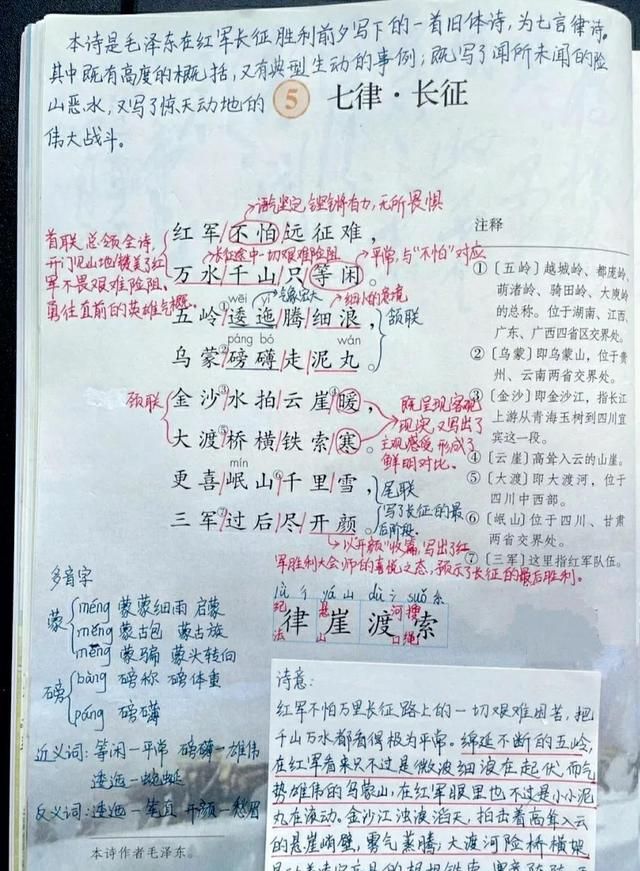 本诗是毛泽东在红军长征胜利前夕写下的一首旧体诗,为七言律诗。
其中既有高度的概括,又有典型生动的事例;既写了闻所未闻的险
山恶水,又写了惊天动地的
伟大战斗。
5 七律·长征
语气坚定,铿锵有力,无所畏惧
首联总领全诗,
开门见山地赞美了红
军不畏艰难险阻,
勇往直前的英雄气概。
红军/不怕/远征难,
长征途中一切艰难险阻
平常,与“不怕”对应
万水/千山/只/等闲。
气象宏大
细小的意境
wēi yí
五岭①/逶迤/腾/细浪,
颔联
páng bó wán
乌蒙②/磅礴/走/泥丸。
颈联
金沙③/水拍/云崖④/暖,
大渡⑤/桥横/铁索/寒。
既呈现客观
现实,又写出了
主观感受,形成了
鲜明对比。
mín
更喜/岷山⑥/千里雪,
三军⑦/过后/尽/开颜。
尾联
写了长征的最
后阶段。
以“开颜”收篇,写出了红
军胜利大会师的喜悦之态,预示了长征的最后胜利。
注释
①〔五岭〕越城岭、都庞岭、
萌渚岭、骑田岭、大庾岭
的总称。位于湖南、江西、
广东、广西四省区交界处。
②〔乌蒙〕即乌蒙山,位于贵
州、云南两省交界处。
③〔金沙〕即金沙江,指长江
上游从青海玉树到四川宜
宾这一段。
④〔云崖〕高耸入云的山崖。
⑤〔大渡〕即大渡河,位于
四川中西部。
⑥〔岷山〕位于四川、甘肃
两省交界处。
⑦〔三军〕这里指红军队伍。
多音字
蒙 méng 蒙蒙细雨 启蒙
měng 蒙古包 蒙古族
mēng 蒙骗 蒙头转向
磅 bàng 磅称 磅体重
páng 磅礴
近义词:等闲—平常 磅礴—雄伟
逶迤—蜿蜒
反义词:逶迤—笔直 开颜—愁眉
本诗作者毛泽东。
lǜ 彳 yá 山 dù 氵 suǒ 糸
律 崖 渡 索
纪法 悬山 河口 搜绳
诗意:
红军不怕万里长征路上的一切艰难困苦,把
千山万水都看得极为平常。绵延不断的五岭,
在红军看来只不过是微波细浪在起伏,而气
势雄伟的乌蒙山,在红军眼里也不过是小小泥
丸在滚动。金沙江浊浪滔天,拍击着高耸入云
的悬崖峭壁,雾气蒸腾;大渡河险桥横架,